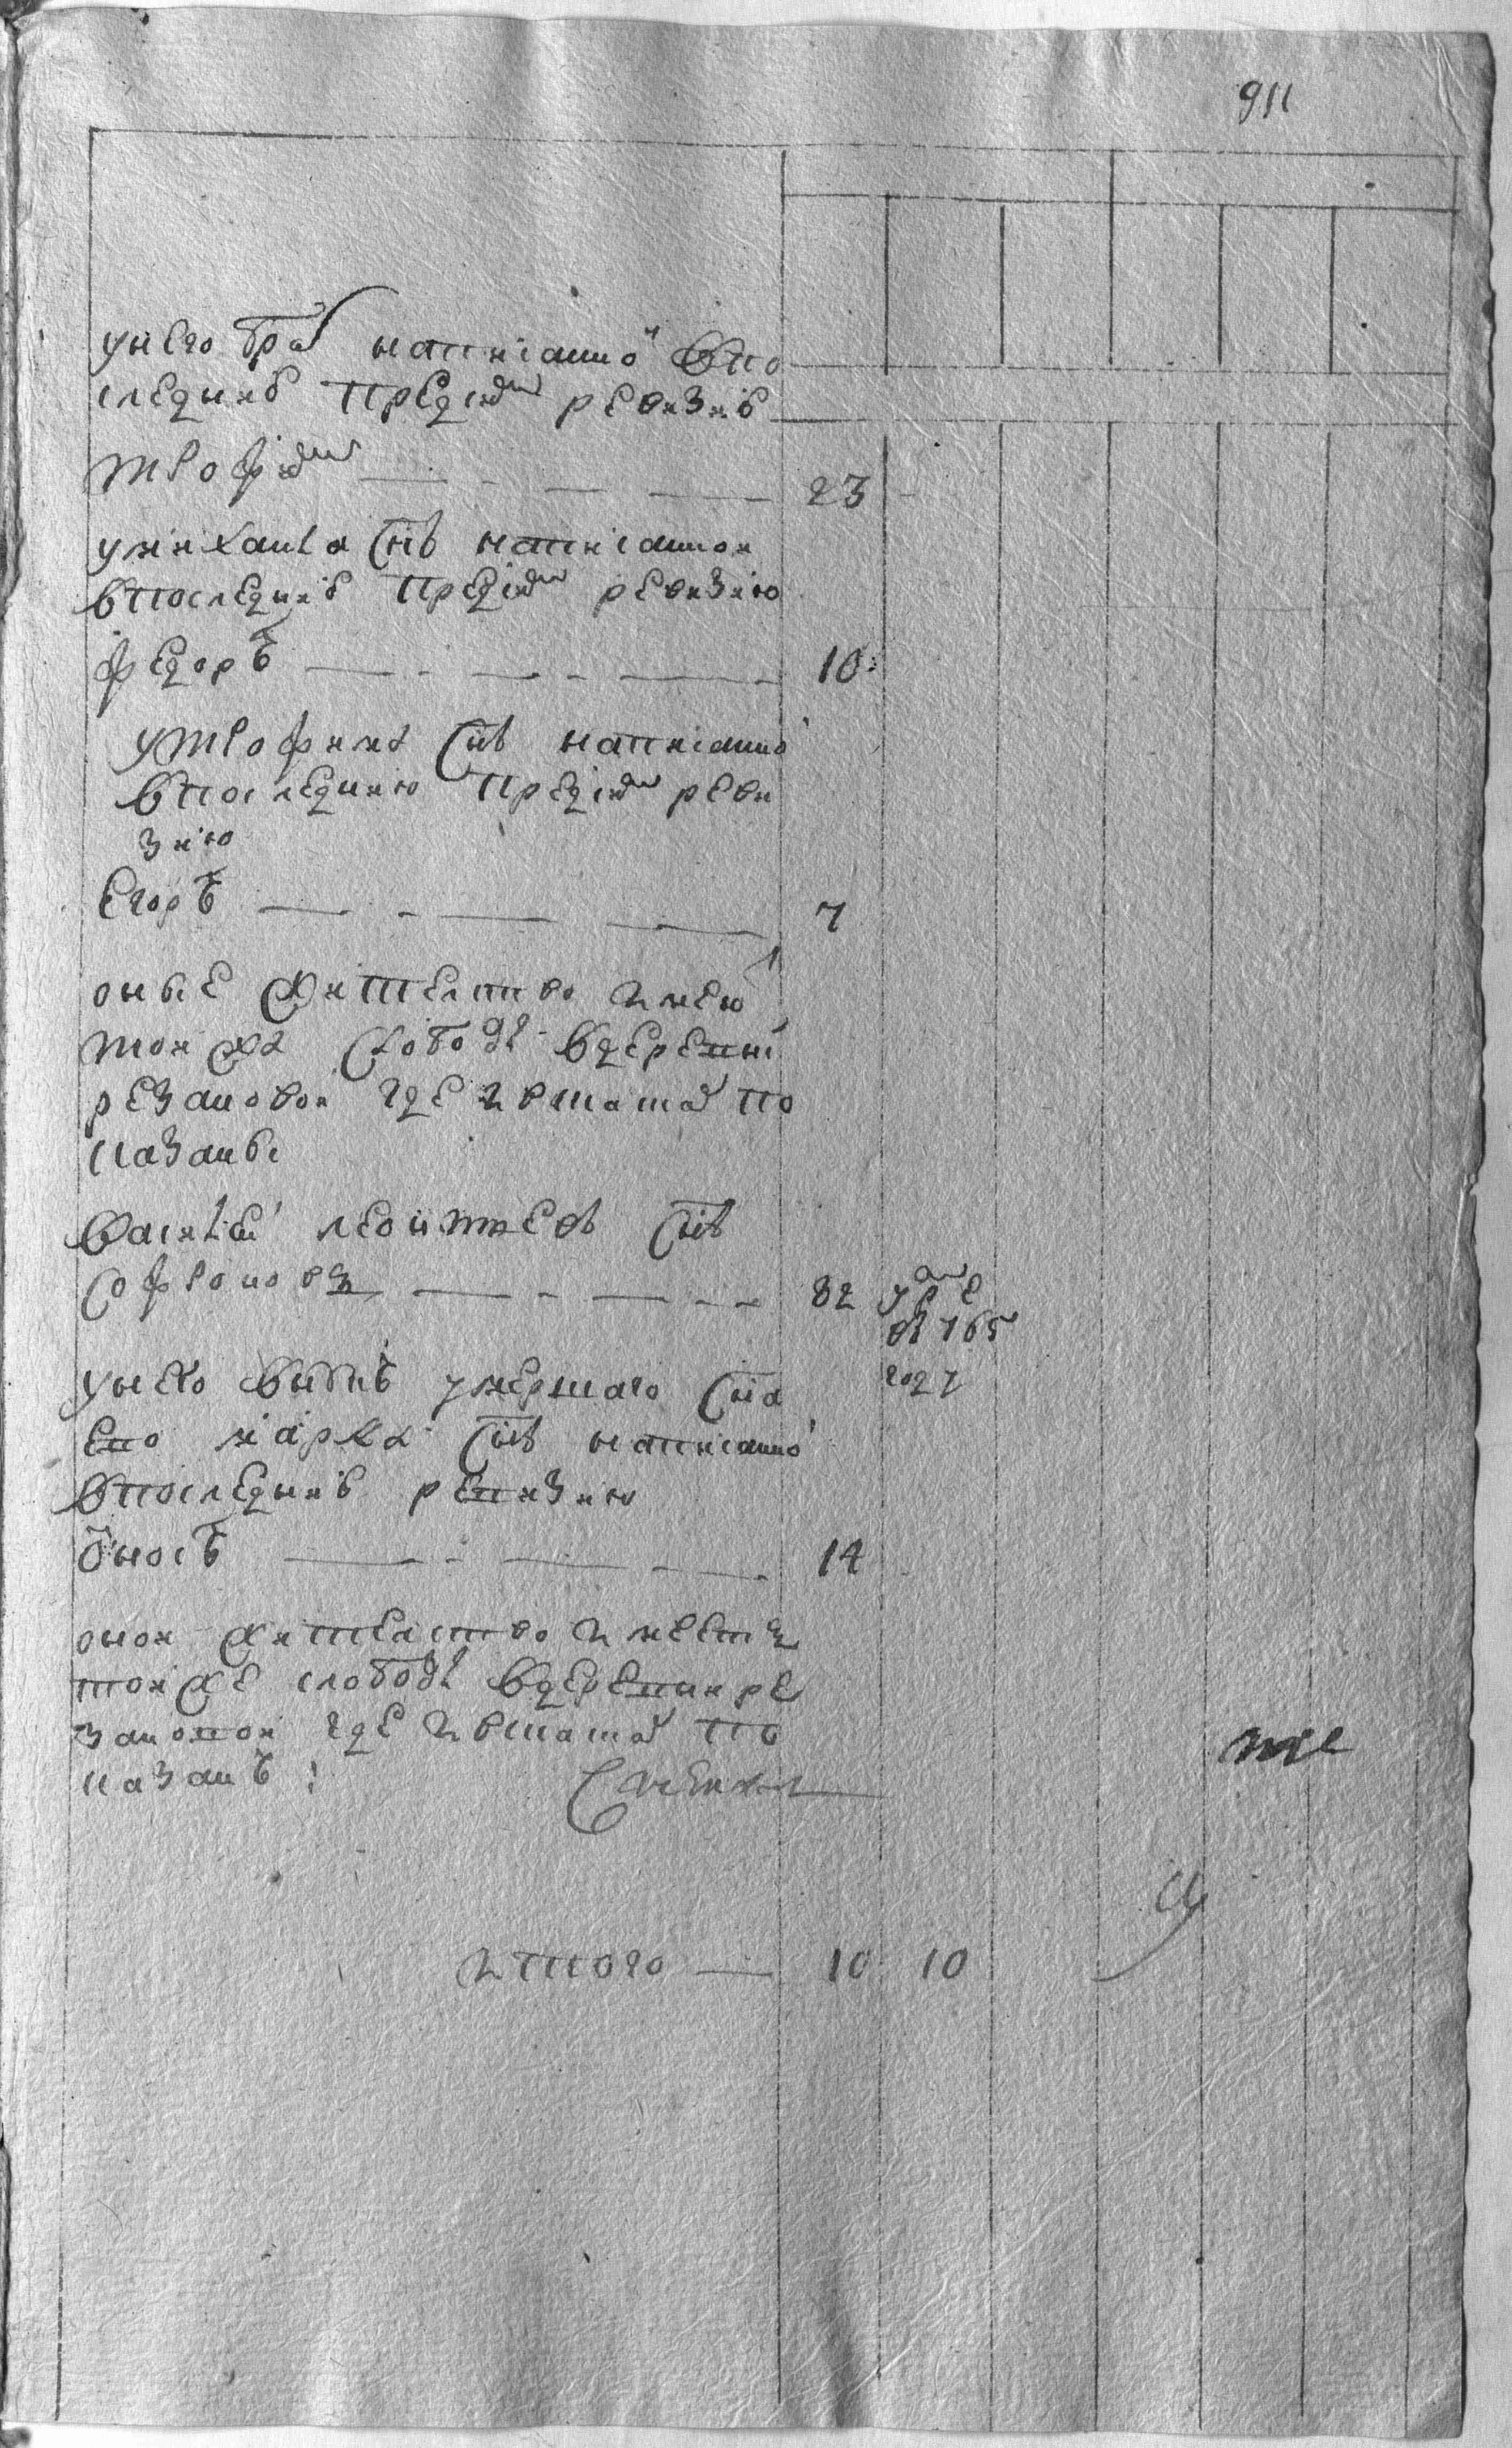 911
унего брат написанной впо
следнюю предидущ ревизию
трофим 23
умихаила снъ написанной
впоследнюю предидущ ревизию
федоръ 10
утрофима снъ написанной
впоследнюю предидущ реви
зию
Егоръ 7
оные жителство имеют
той же слободы вдеревни
резановой где ивштат по
казаны
василей леонтиевъ снъ
софроновъ 82 умре
въ 765
году
унего внукъ умершаго сна
ево марка снъ написанной
впоследнюю ревизию
аносъ 14
оной жителство имеетъ
тойже слободы вдеревни ре
зановой где ивштат по
казанъ
итого 10 10